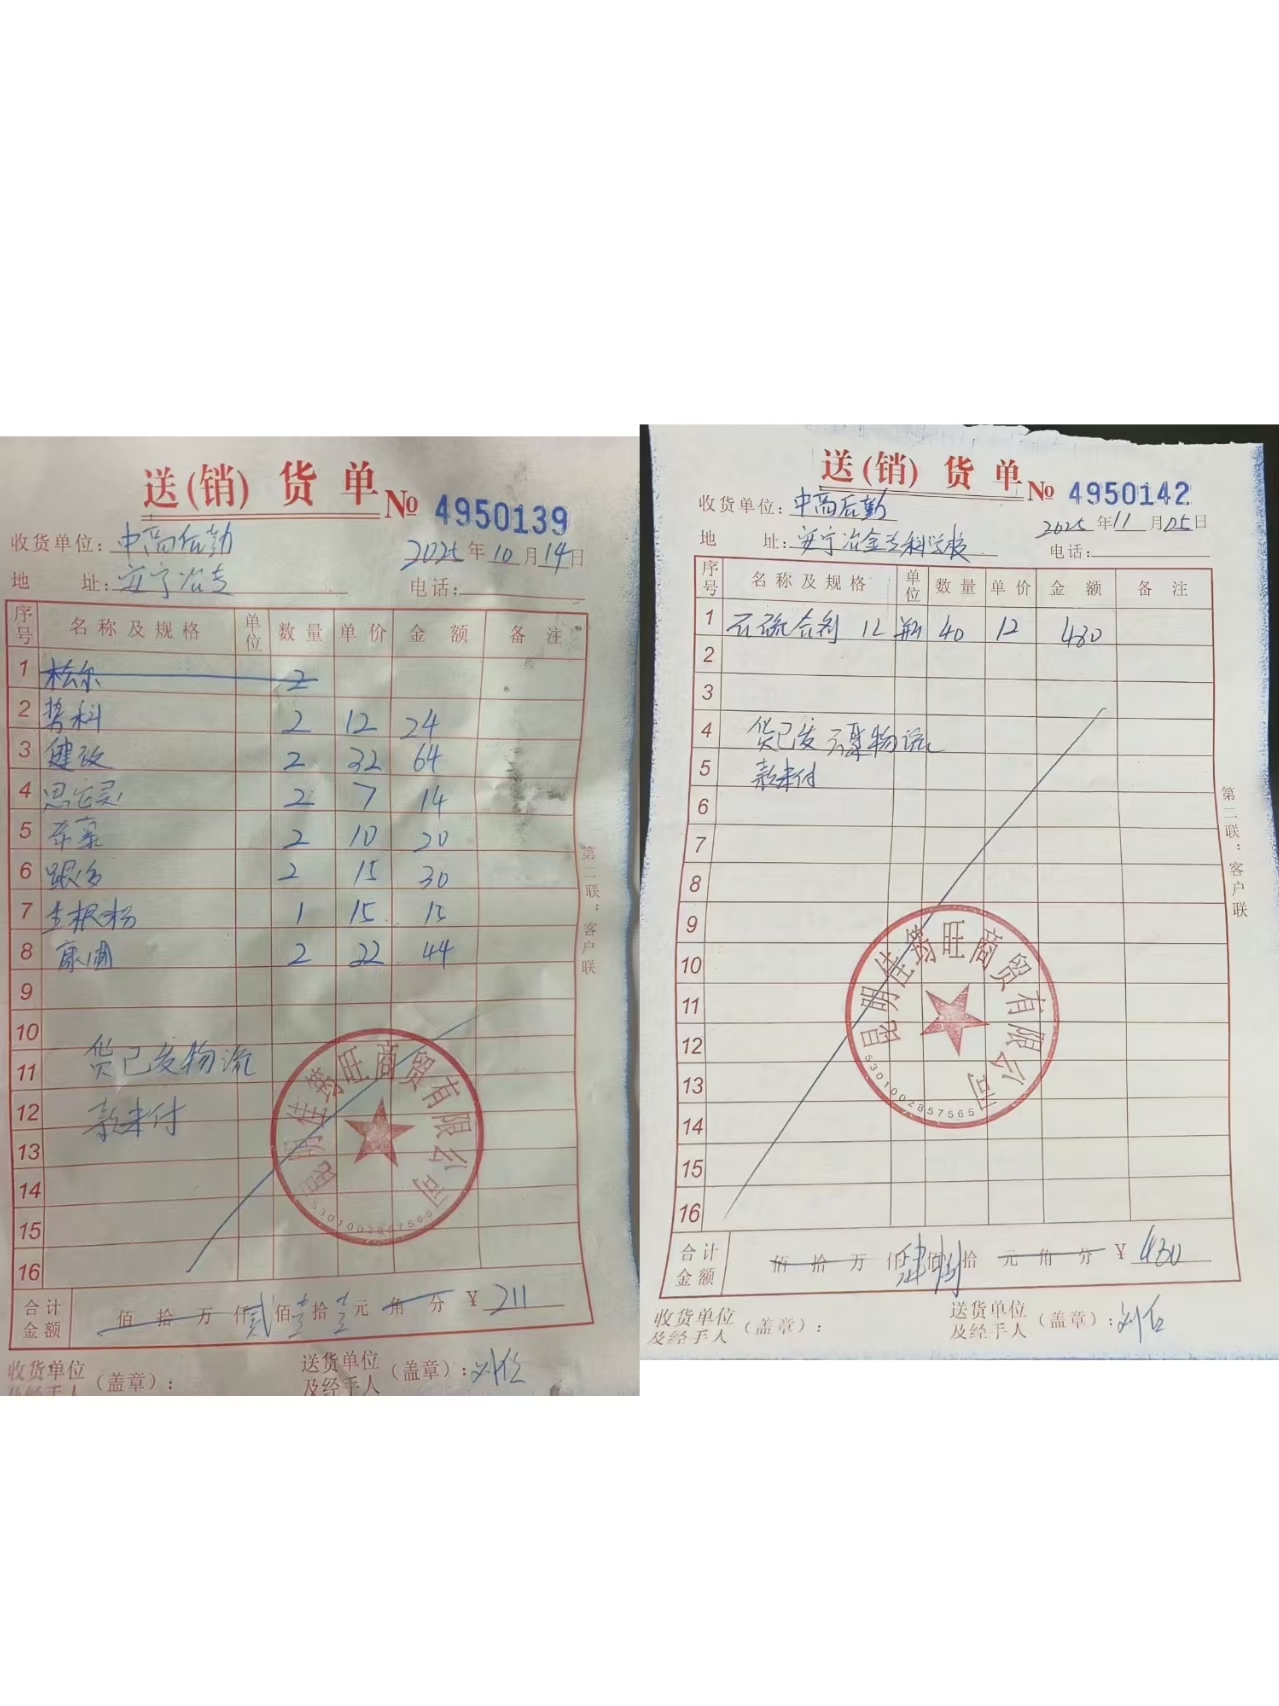 送(销) 货 单 № 4950139
收货单位: 中高后勤 2025 年 10 月 14 日
地 址: 安宁冶专 电话:
序号 名称及规格 单位 数量 单价 金额 备注
1 2
2 2 12 24
3 健攻 2 32 64
4 2 7 14
5 2 10 20
6 跟多 2 15 30
7 生根粉 1 15 15
8 康圃 2 22 44
9
10
11 货已发物流
12 款未付
13
14
15
16
合计金额 佰 拾 万 仟 贰 佰 壹 拾 壹 元 角 分 ¥ 211
收货单位及经手人 (盖章): 送货单位及经手人 (盖章): 刘仕
第二联:客户联
昆明佳筠旺商贸有限公司
5301002857565
送(销) 货 单 № 4950142
收货单位: 中高后勤 2025 年 11 月 05 日
地 址: 安宁冶金专科学校 电话:
序号 名称及规格 单位 数量 单价 金额 备注
1 石硫合剂 1L 瓶 40 12 480
2
3
4 货已发 物流
5 款未付
6
7
8
9
10
11
12
13
14
15
16
合计金额 佰 拾 万 仟 肆 佰 捌 拾 元 角 分 ¥ 480
收货单位及经手人 (盖章): 送货单位及经手人 (盖章): 刘仕
第二联:客户联
昆明佳筠旺商贸有限公司
5301002857565